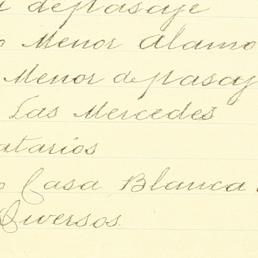 depasaje
o Menor Alamo
Menor depasaj
Las Mercedes
atarios
o Casa Blanca
Diversos